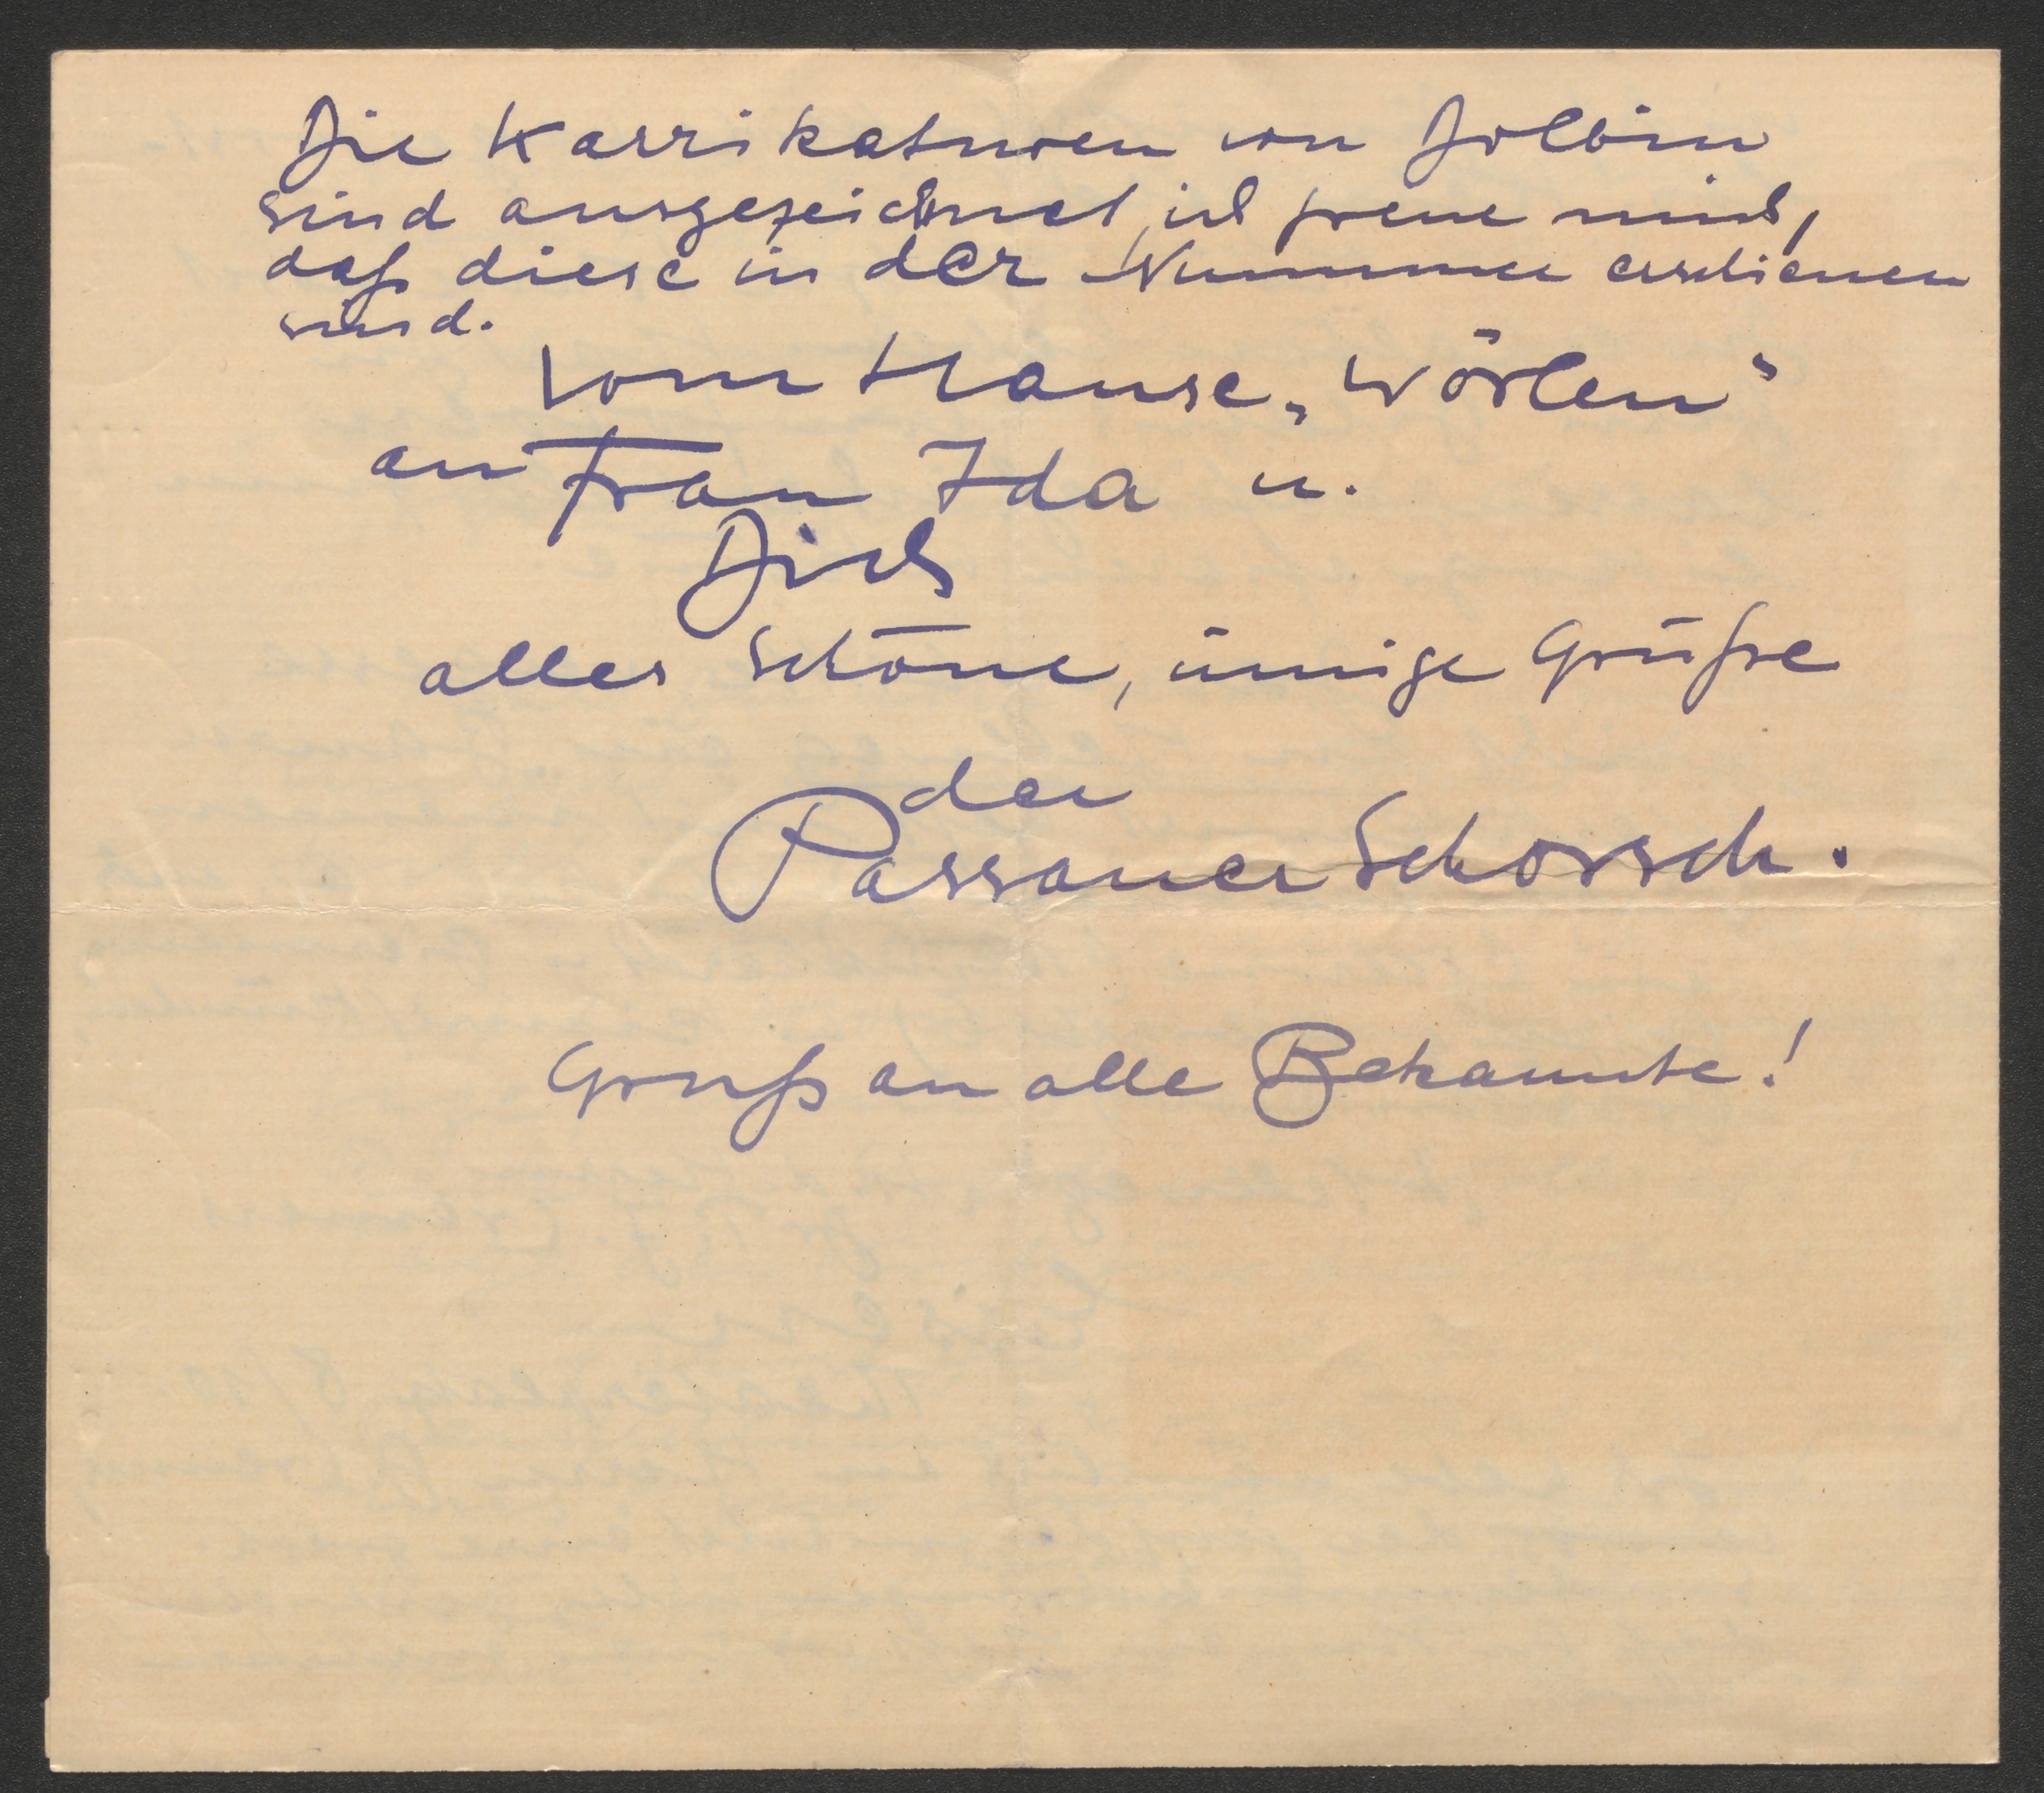 Die Karrikaturen von Dolbin
sind ausgezeichnet, ich freue mich,
daß diese in der Nummer erschienen
sind.
Vom Hause „Wörlen“
an Frau Ida u.
Dich
alles Schöne, innige Grüße
der
Passauer Schorsch.
Gruß an alle Bekannte!